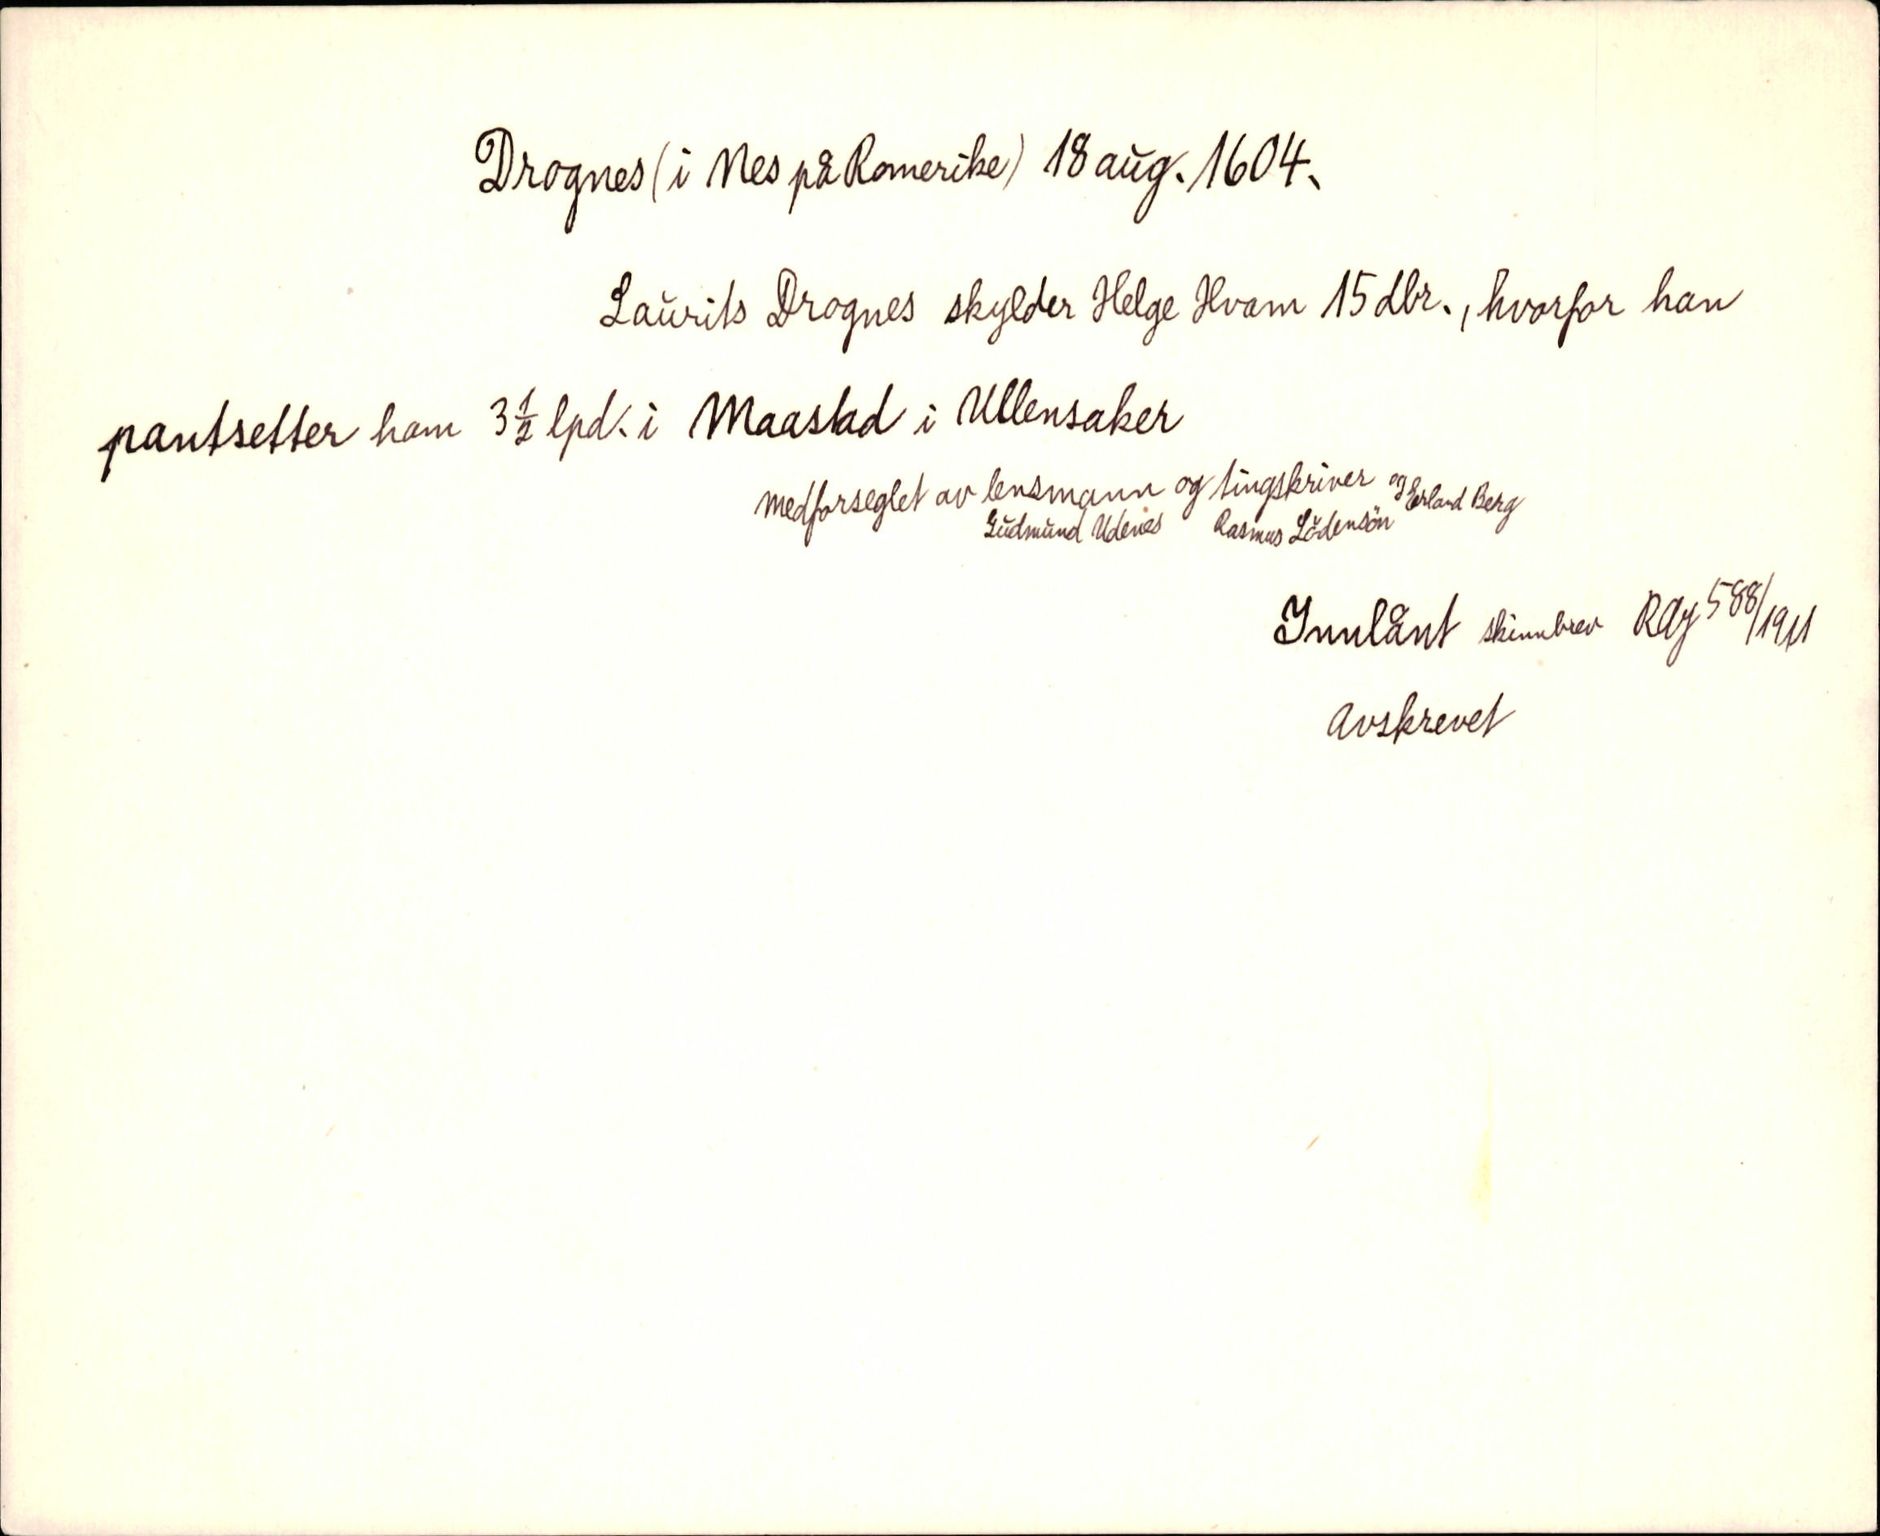 Drognes (i Nes på Romerike) 18 aug. 1604.
Laurits Drognes skylder Helge Hvam 15 dlr., hvorfor han
pantsetter ham 3 1/2 lpd. i Maastad i Ullensaker
Medforseglet av lensmann og tingskriver og Erland Berg
Gudmund Udenes Rasmus Lödensön
Innlånt skinnbrev RA 588/1911
Avskrevet